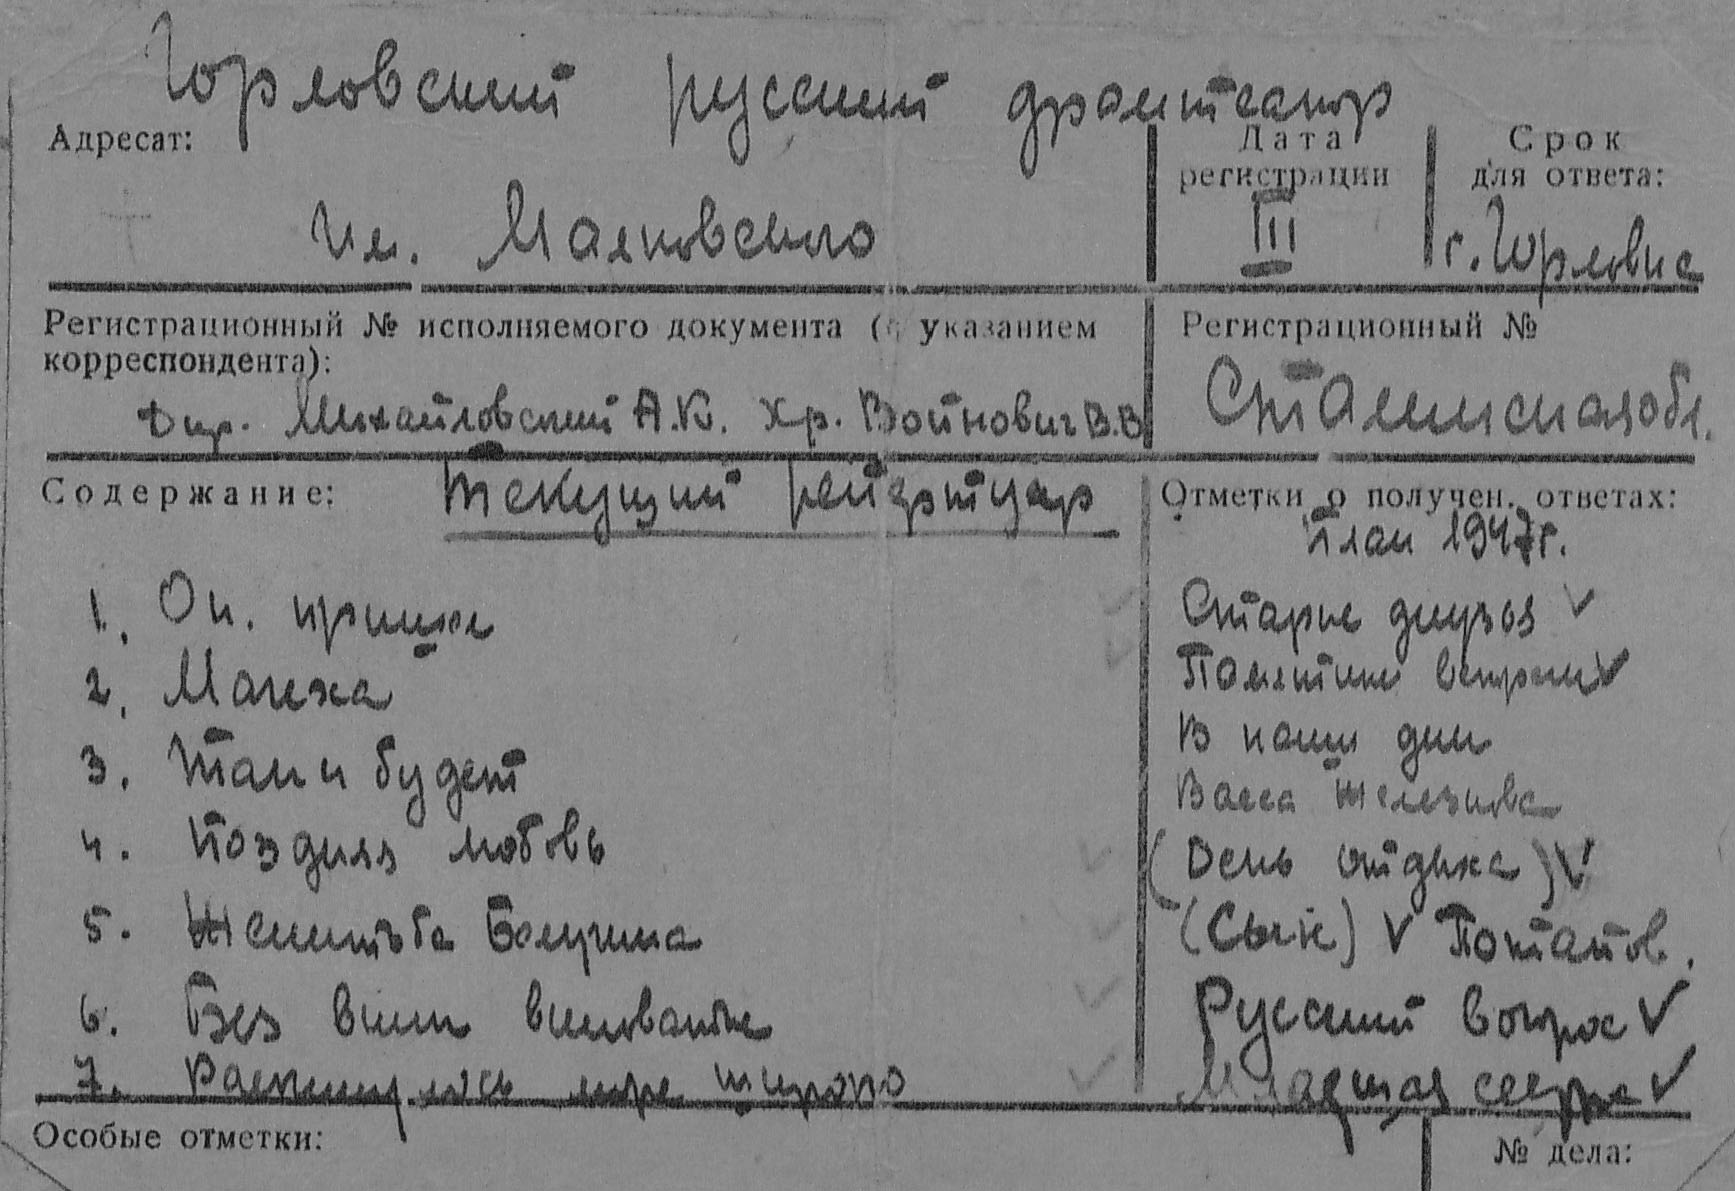 Горловский русский драмтеатр
Адресат:
Дата регистрации
Срок для ответа:
им. Маяковского
III
г. Горловка
Регистрационный № исполняемого документа (с указанием
корреспондента):
Регистрационный №
Дир. Михайловский А.К. Хр. Войнович В.В.
Сталинская обл.
Содержание:
Текущий репертуар
Отметки о получен. ответах:
План 1947г.
1. Он. пришел
Старые друзья ✓
2. Мачеха
✓
3. Так и будет
В наши дни
Васса Железнова
4. Поздняя любовь
(День отдыха) ✓
5. Женитьба Бальзаминова
(Сын) ✓
6. Без вины виноватые
Русский вопрос ✓
7. Раскинулось море широко
Младшая сестра ✓
Особые отметки:
№ дела: